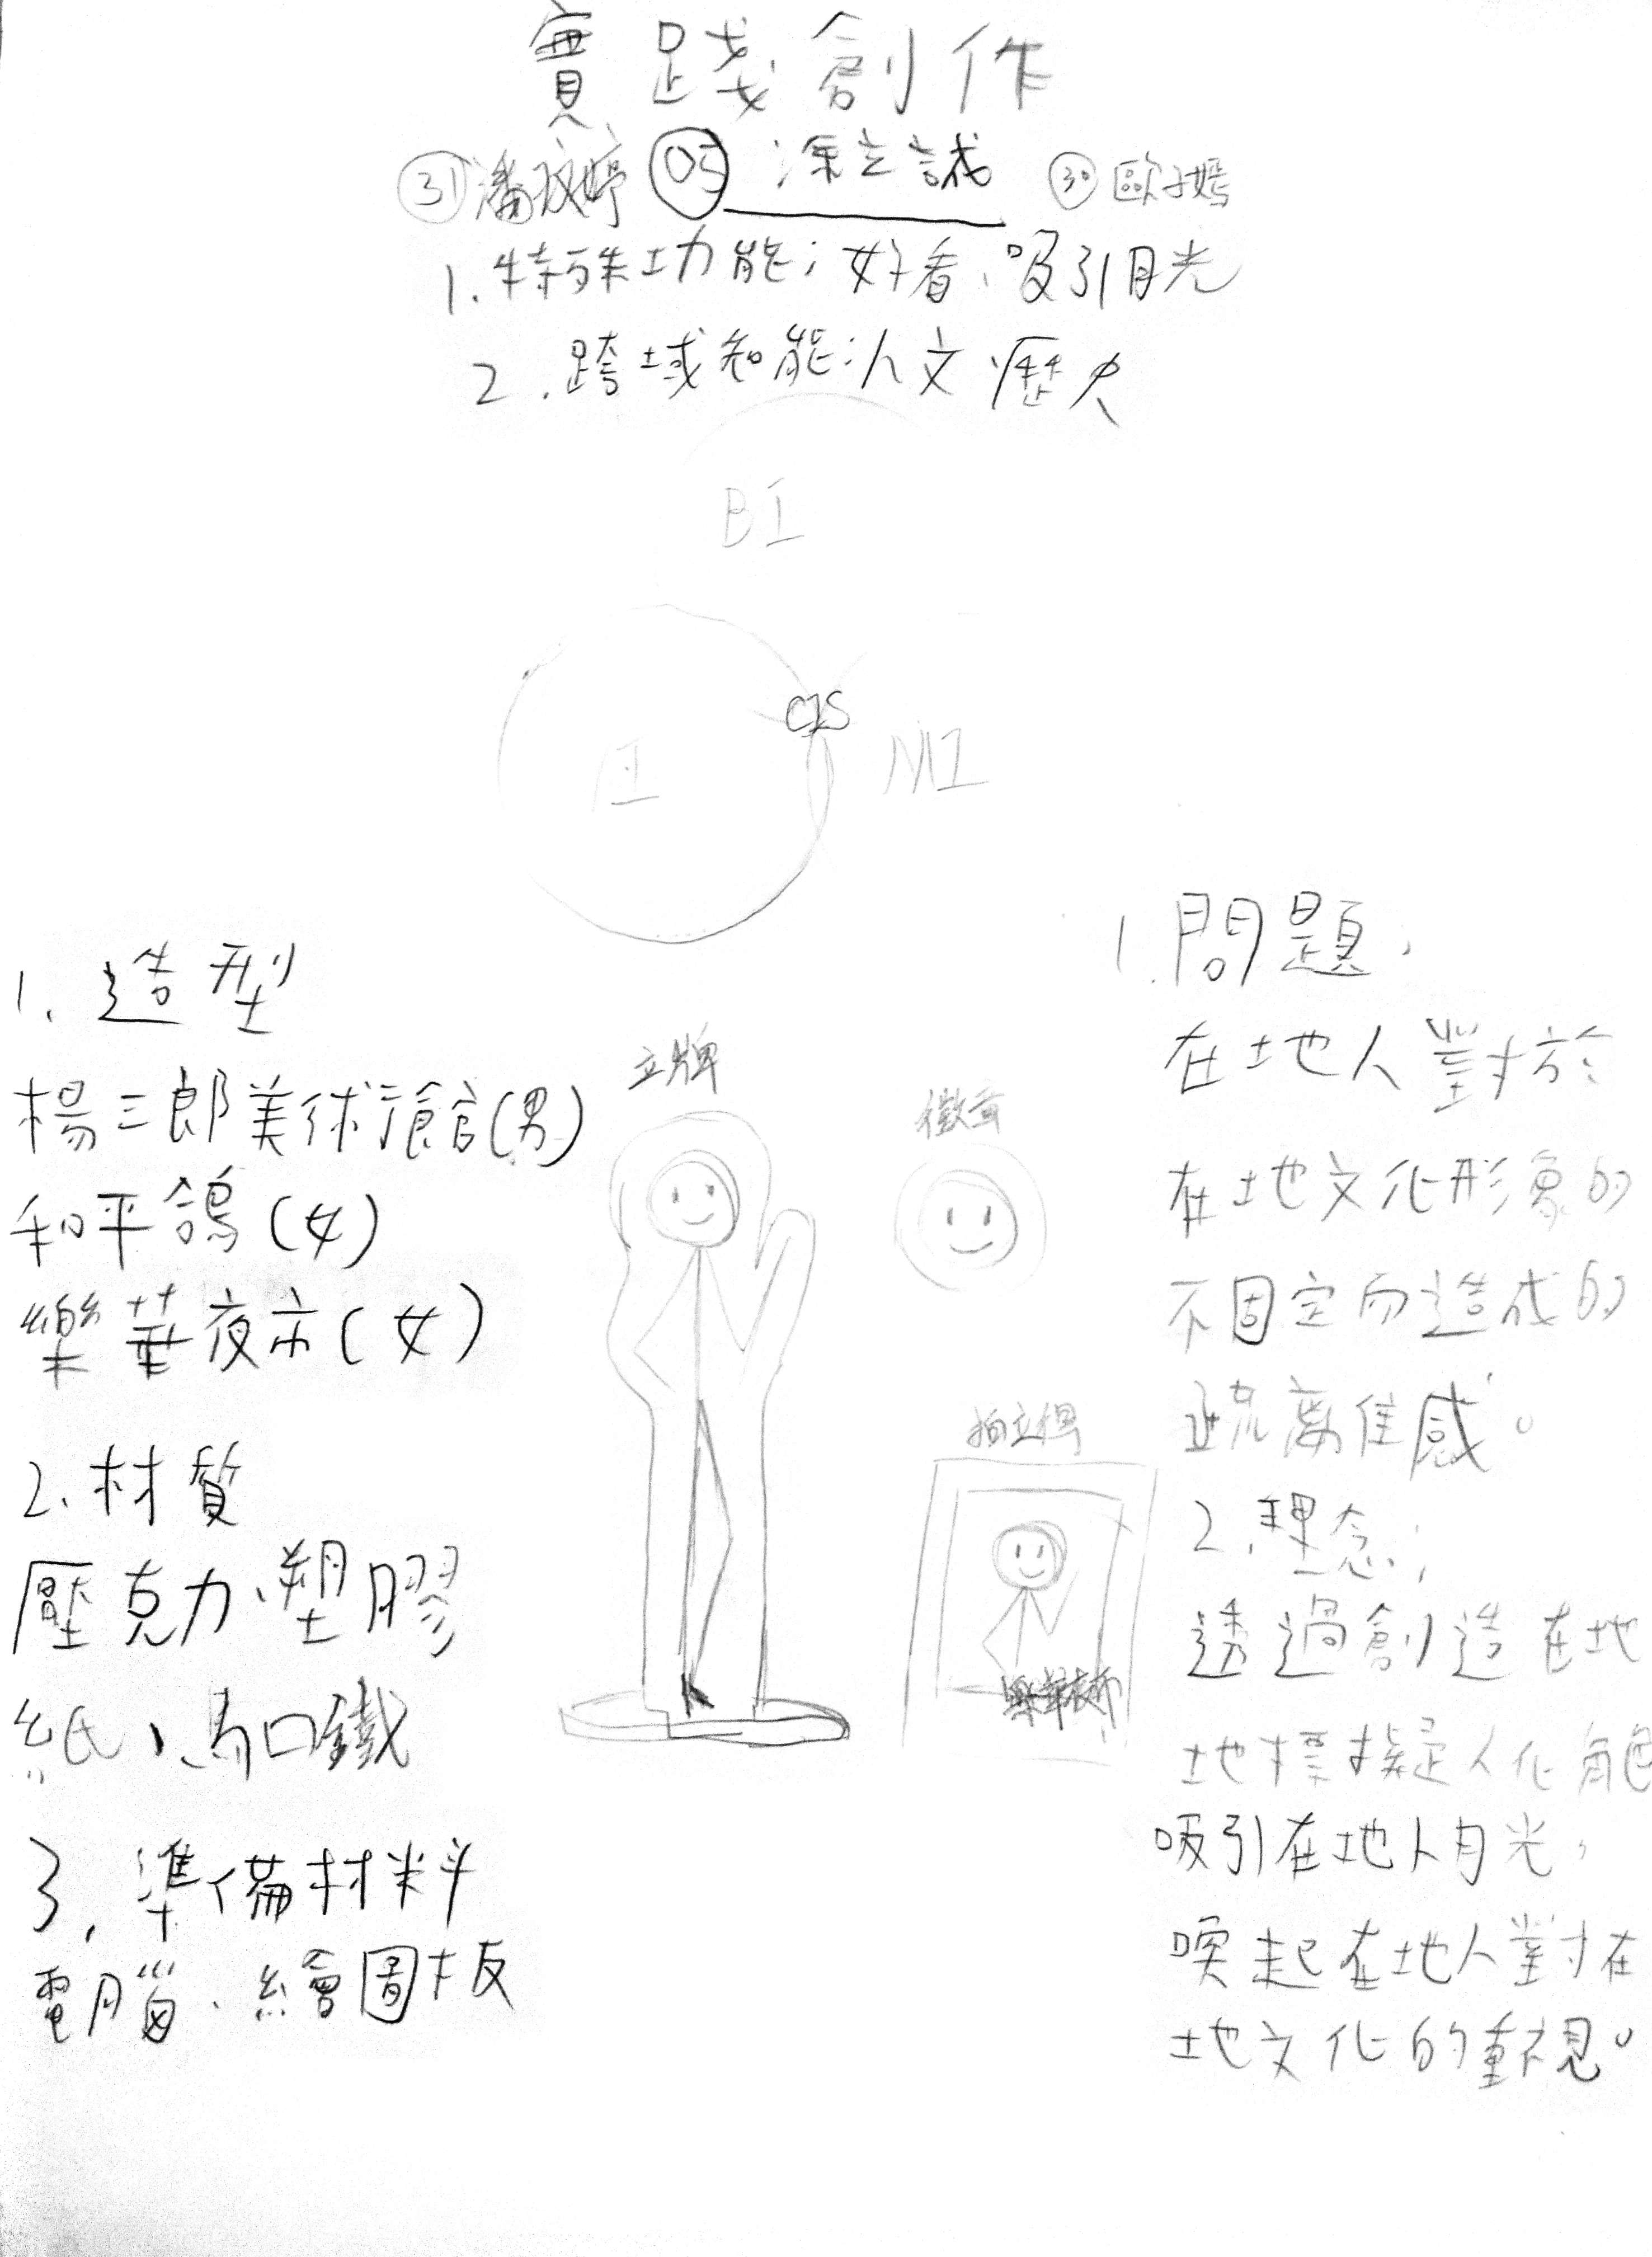 實踐創作
㉛潘玟婷 ⓪⑤ 涂立誠 ㉚歐子嫣
1. 特殊功能：好看、吸引目光
2. 跨域知能：人文歷史
BI
CIS
MI
1. 造型
楊三郎美術館(男)
和平鴿(女)
樂華夜市(女)
2. 材質
壓克力、塑膠
紙、馬口鐵
3. 準備材料
電腦、繪圖板
立牌
徽章
拍立得
樂華夜市
1. 問題：
在地人對於
在地文化形象的
不固定而造成的
疏離感。
2. 理念：
透過創造在地
地標擬人化角色
吸引在地人目光，
喚起在地人對在
地文化的重視。